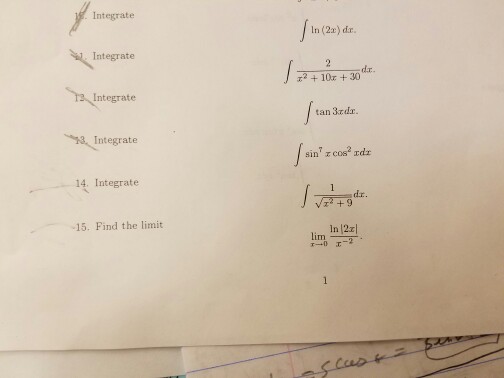 10. Integrate
∫ ln (2x) dx.
11. Integrate
∫ 2/(x² + 10x + 30) dx.
12. Integrate
∫ tan 3xdx.
13. Integrate
∫ sin⁷ x cos² xdx
14. Integrate
∫ 1/√(x² + 9) dx.
15. Find the limit
lim x→0 ln |2x| / x⁻².
1